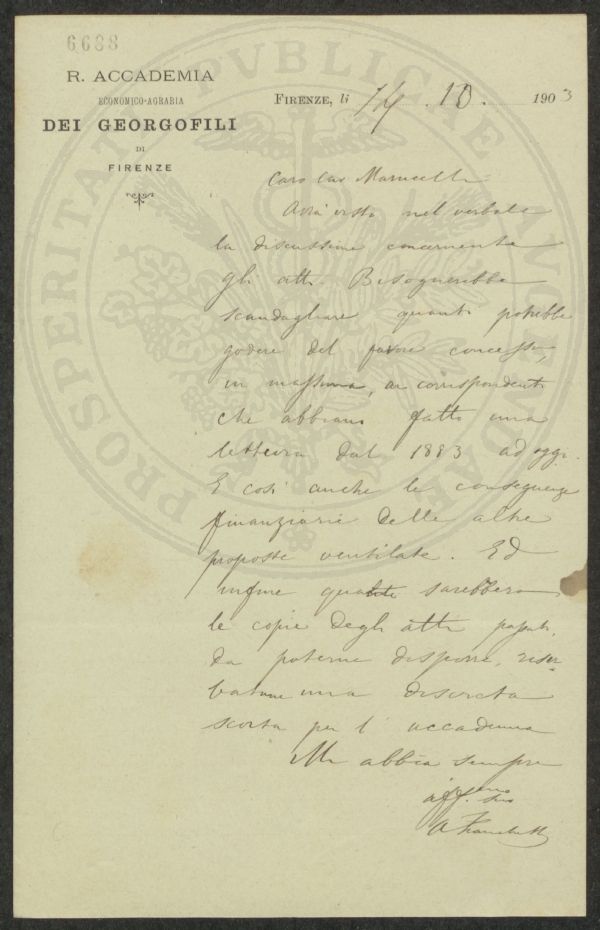 6688
R. ACCADEMIA
ECONOMICO-AGRARIA
DEI GEORGOFILI
DI
FIRENZE
FIRENZE, li 14. 10. 1903
Caro Cav Marucelli
Avrà visto nel verbale
la discussione concernente
gli atti. Bisognerebbe
scandagliare quanti potrebbe
godere del favore concesso,
in massima, ai corrispondenti
che abbiano fatto una
lettura dal 1883 ad oggi.
E così anche le conseguenze
finanziarie delle altre
proposte ventilate. Ed
infine quante sarebbero
le copie degli atti passati,
da poterne disporre, riser-
batane una discreta
scorta per l'accademia
Mi abbia sempre
aff.mo suo
A Franchetti
PROSPERITATI PVBLICAE AVGENDAE